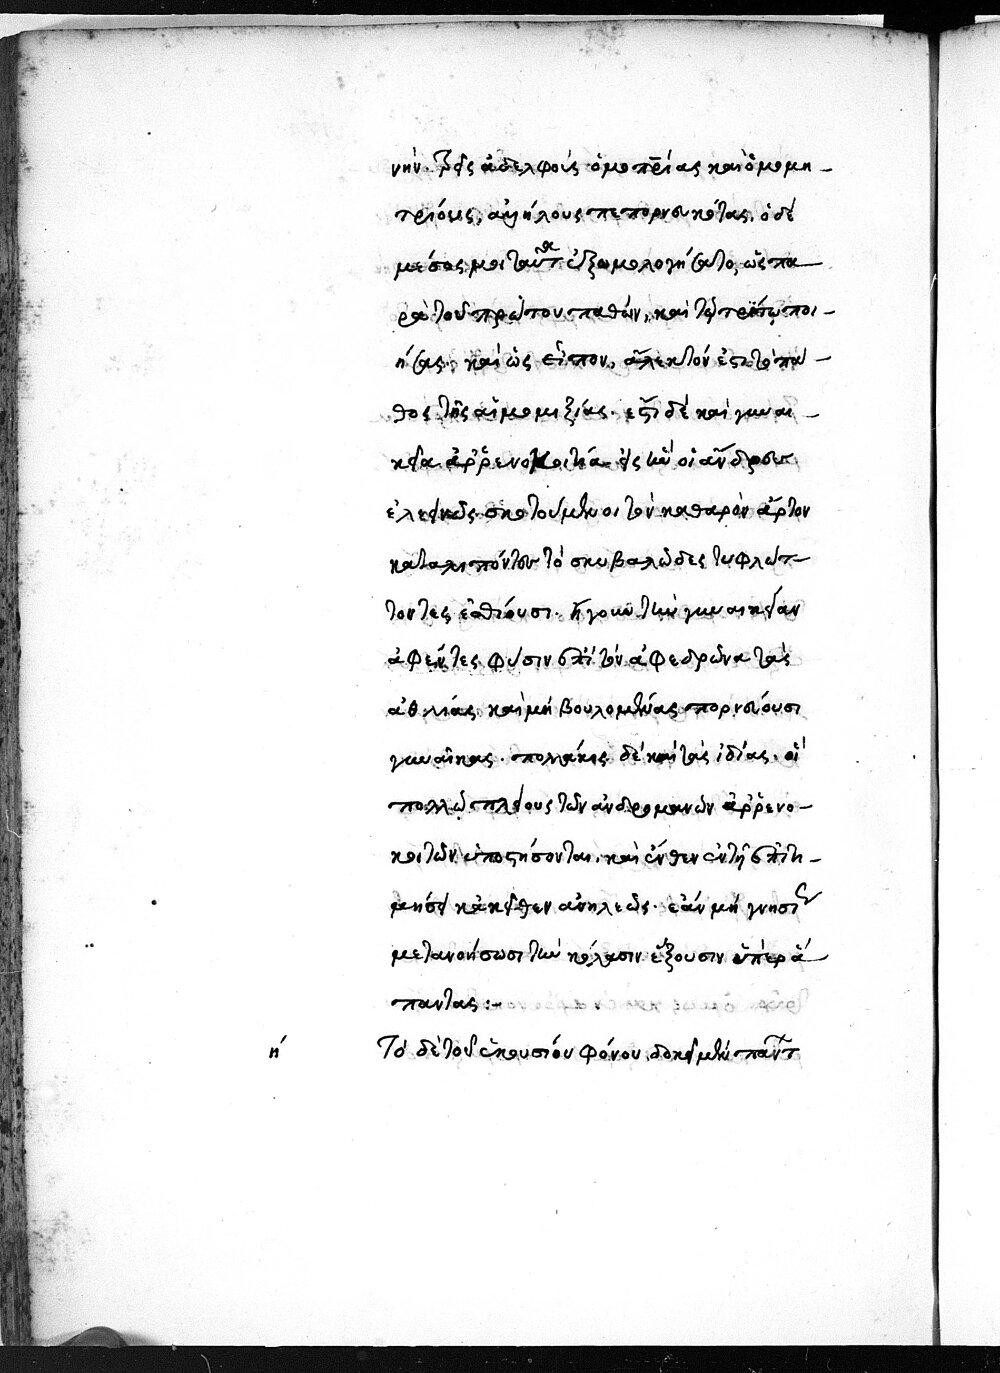 νήν. τρεῖς ἀδελφοὺς ὁμοπρίας καὶ ὁμομη-
τρίους, ἀλλήλους πεπορνευκότας. ὁ δὲ
μέσος μοι ταῦτα ἐξωμολογήσατο, ὡς πα-
ρὰ τοῦ πρώτου παθών, καὶ τῷ τρίτῳ ποι-
ήσας. καὶ ὡς εἶπον, ἄλεκτόν ἐστι τὸ πά-
θος τῆς αἱμομιξίας. ἔστι δὲ καὶ γυναι-
κεία ἀρρενοκοιτία. εἰς ἣν οἱ ἄνδρες
ἐλεεινῶς σκοτούμενοι τὸν καθαρὸν ἄρτον
καταλιπόντες τὸ σκυβαλῶδες τυφλώτ-
τοντες ἐσθίουσι. ἤγουν τὴν γυναικείαν
ἀφέντες φύσιν ἐπὶ τὸν ἀφεδρῶνα τὰς
ἀθλίας καὶ μὴ βουλομένας πορνεύουσι
γυναῖκας. πολλάκις δὲ καὶ τὰς ἰδίας. οἳ
πολλῷ πλείους τῶν ἀνδρομανῶν ἀρρενο-
κοιτῶν ὑποστήσονται. καὶ ἔνθεν ἐν τῇ ἐπιτι-
μήσει κἀκεῖθεν ἀνηλεῶς. ἐὰν μὴ γνησίως
μετανοήσωσι τὴν κόλασιν ἕξουσιν ὑπὲρ ἅ-
παντας :-
η Τὸ δὲ τοῦ ἑκουσίου φόνου, δοκεῖ μὲν παντ